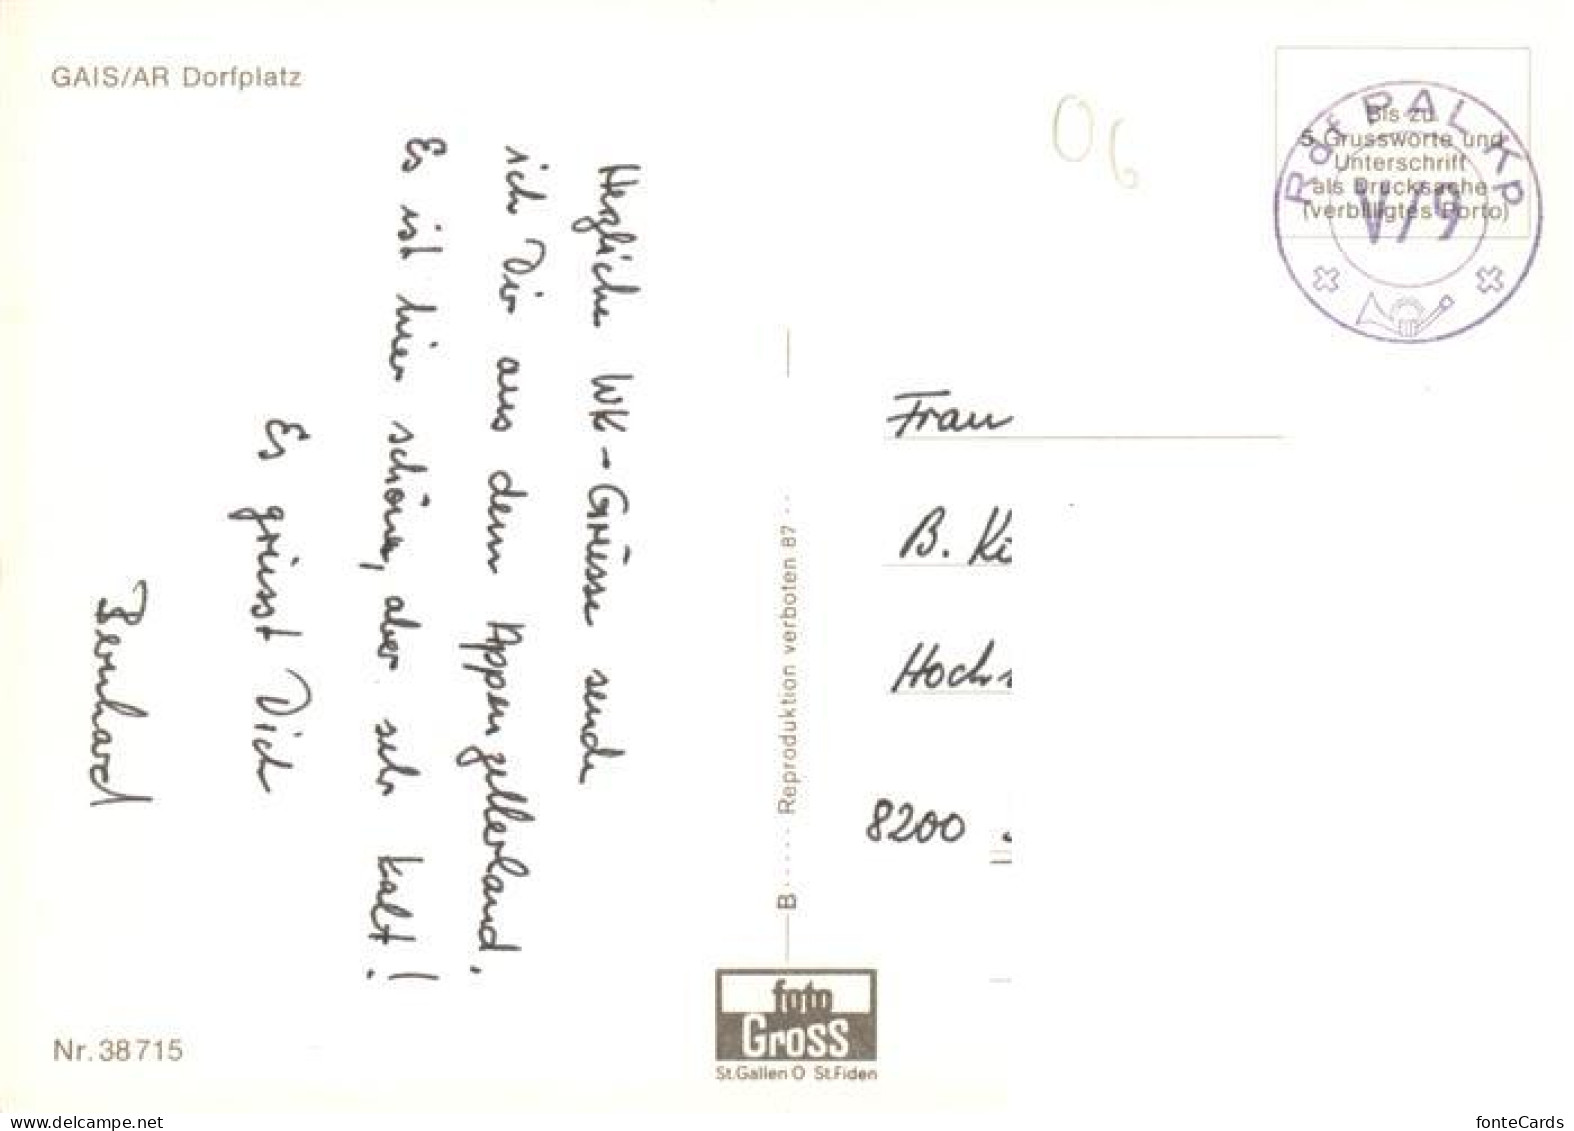 GAIS/AR Dorfplatz
Herzliche WK-Grüsse sende
ich Dir aus dem Appenzellerland.
Es ist hier schön, aber sehr kalt!
Es grüsst Dich
Bernhard
Nr. 38715
B ..... Reproduktion verboten 87 ..
foto
Gross
St.Gallen O St.Fiden
06
Bis zu
5 Grussworte und
Unterschrift
als Drucksache
(verbilligtes Porto)
Rdf PAL Kp
V/9
Frau
B. Ki
Hoch
8200
fonteCards